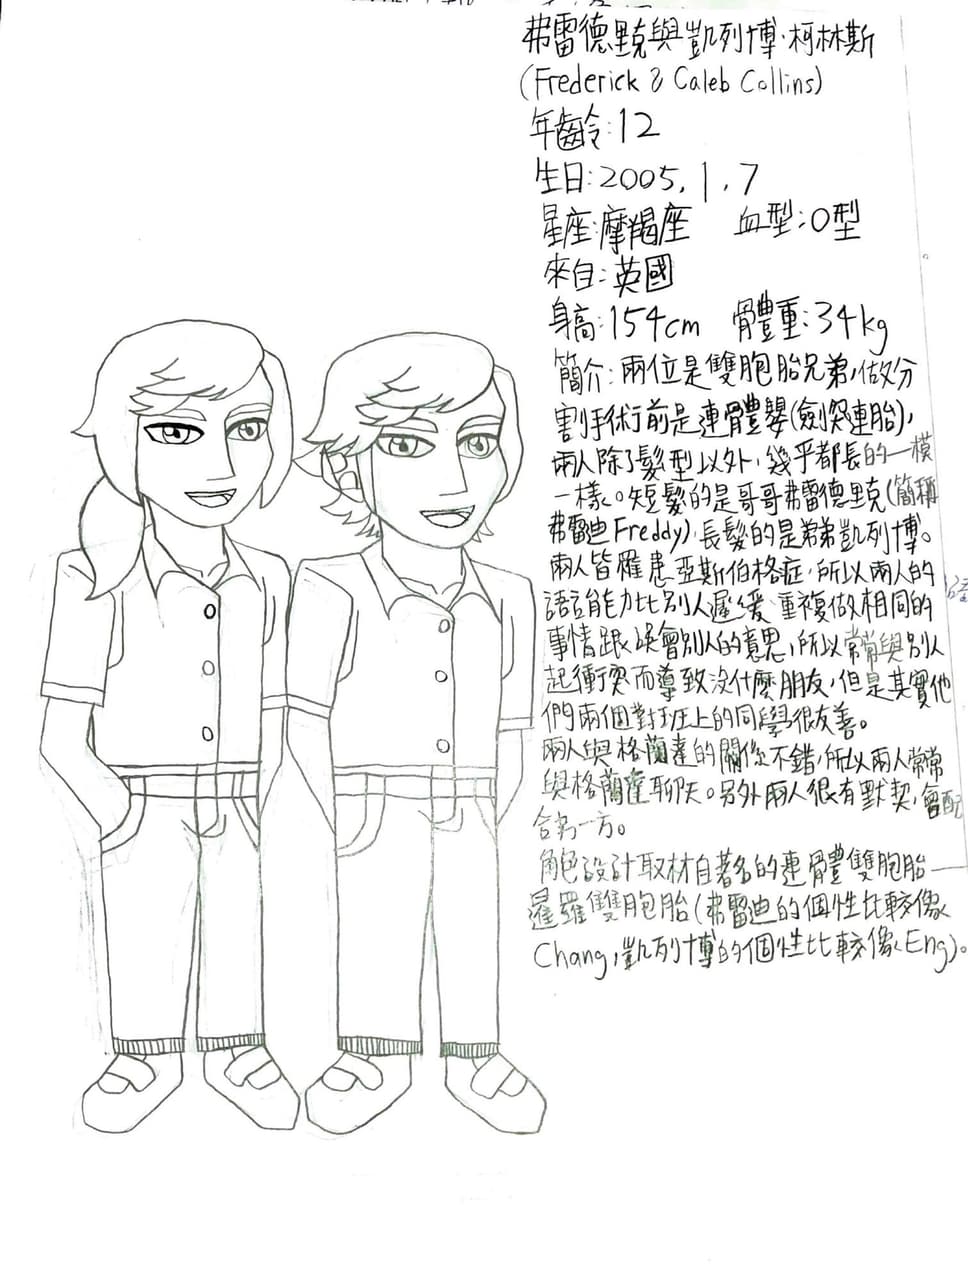 弗雷德里克與凱列博·柯林斯
(Frederick & Caleb Collins)
年齡:12
生日:2005.1.7
星座:摩羯座 血型:O型
來自:英國
身高:154cm 體重:34kg
簡介:兩位是雙胞胎兄弟,做好分
割手術前是連體嬰(劍突連胎),
兩人除了髮型以外,幾乎都長的一模
一樣。短髮的是哥哥弗雷德里克(簡稱
弗雷迪Freddy),長髮的是弟弟凱列博。
兩人皆罹患亞斯伯格症,所以兩人的
語言能力比別人遲緩、重複做相同的
事情跟誤會別人的意思,所以常常與別人
起衝突而導致沒什麼朋友,但是其實他
們兩個對班上的同學很友善。
兩人與格蘭達的關係不錯,所以兩人常常
與格蘭達聊天。另外兩人很有默契,會配
合另一方。
角色設計取材自著名的連體雙胞胎—
暹羅雙胞胎(弗雷迪的個性比較像
Chang,凱列博的個性比較像Eng)。